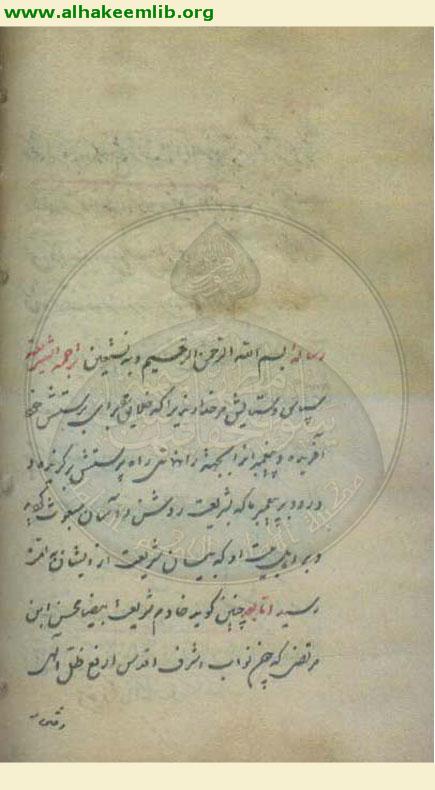 www.alhakeemlib.org
رساله بسم الله الرحمن الرحیم وبه نستعین ترجمة الشریعة
سپاس و ستایش مر خداوندیرا که خلایق را برای پرستش خود
آفریده و پیغمبرانرا بجهة راه پرستش برگزیده و
درود بر پیغمبر ما که بشریعت روشن و آسان مبعوث گردید
و بر اهل بیت او که بیان شریعت از ایشان بما
رسید اما بعد چنین گوید خادم شریعت بیضا محسن ابن
مرتضی که چون نواب اشرف اقدس ارفع ظل الهی